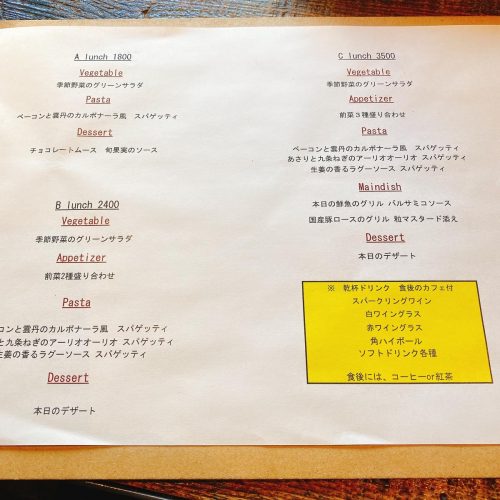 A lunch 1800
Vegetable
季節野菜のグリーンサラダ
Pasta
ベーコンと雲丹のカルボナーラ風 スパゲッティ
Dessert
チョコレートムース 旬果実のソース
B lunch 2400
Vegetable
季節野菜のグリーンサラダ
Appetizer
前菜2種盛り合わせ
Pasta
コンと雲丹のカルボナーラ風 スパゲッティ
と九条ねぎのアーリオオーリオ スパゲッティ
生姜の香るラグーソース スパゲッティ
Dessert
本日のデザート
C lunch 3500
Vegetable
季節野菜のグリーンサラダ
Appetizer
前菜３種盛り合わせ
Pasta
ベーコンと雲丹のカルボナーラ風 スパゲッティ
あさりと九条ねぎのアーリオオーリオ スパゲッティ
生姜の香るラグーソース スパゲッティ
Maindish
本日の鮮魚のグリル バルサミコソース
国産豚ロースのグリル 粒マスタード添え
Dessert
本日のデザート
※ 乾杯ドリンク 食後のカフェ付
スパークリングワイン
白ワイングラス
赤ワイングラス
角ハイボール
ソフトドリンク各種
食後には、コーヒーor紅茶